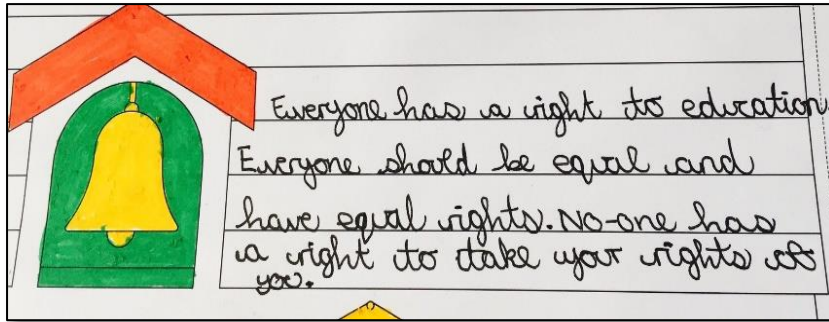 Everyone has a right to education
Everyone should be equal and
have equal rights. No-one has
a right to take your rights of
you.